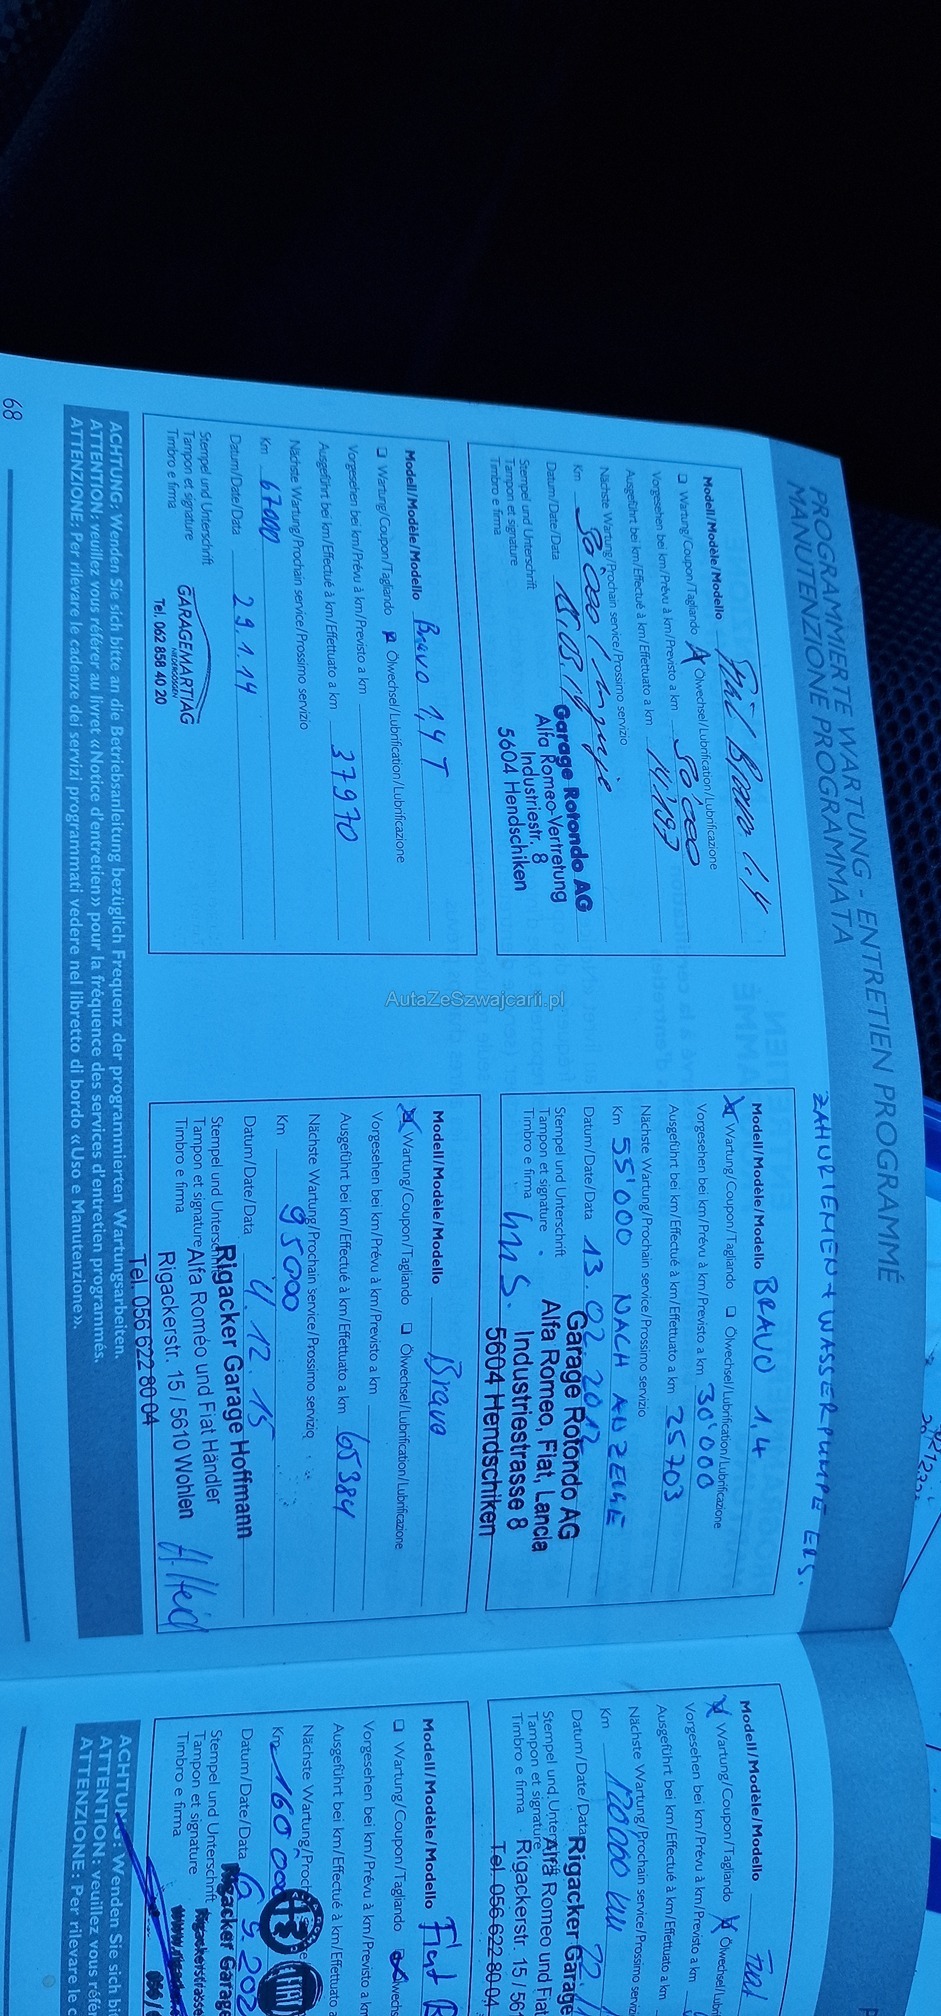 PROGRAMMIERTE WARTUNG - ENTRETIEN PROGRAMMÉ
MANUTENZIONE PROGRAMMATA
Modell/Modèle/Modello Fiat Bravo 1.4
Wartung/Coupon/Tagliando Ölwechsel/Lubrification/Lubrificazione
Vorgesehen bei km/Prévu à km/Previsto a km
Ausgeführt bei km/Effectué à km/Effettuato a km
Nächste Wartung/Prochain service/Prossimo servizio
Km
Datum/Date/Data
Stempel und Unterschrift
Tampon et signature
Timbro e firma
Garage Rotondo AG
Alfa Romeo-Vertretung
Industriestr. 8
5604 Hendschiken
Modell/Modèle/Modello Bravo 1,4 T
Wartung/Coupon/Tagliando Ölwechsel/Lubrification/Lubrificazione
Vorgesehen bei km/Prévu à km/Previsto a km
Ausgeführt bei km/Effectué à km/Effettuato a km 37970
Nächste Wartung/Prochain service/Prossimo servizio
Km 67000
Datum/Date/Data 29.1.14
Stempel und Unterschrift
Tampon et signature
Timbro e firma
GARAGEMARTIAG
NIEDERGÖSGEN
Tel. 062 858 40 20
ZAHNRIEMEN + WASSERPUMPE ERS.
Modell/Modèle/Modello BRAVO 1,4
Wartung/Coupon/Tagliando Ölwechsel/Lubrification/Lubrificazione
Vorgesehen bei km/Prévu à km/Previsto a km 30'000
Ausgeführt bei km/Effectué à km/Effettuato a km 25703
Nächste Wartung/Prochain service/Prossimo servizio
Km 55'000 NACH ANZEIGE
Datum/Date/Data 13.02.2012
Stempel und Unterschrift
Tampon et signature
Timbro e firma
Garage Rotondo AG
Alfa Romeo, Fiat, Lancia
Industriestrasse 8
5604 Hendschiken
Modell/Modèle/Modello Bravo
Wartung/Coupon/Tagliando Ölwechsel/Lubrification/Lubrificazione
Vorgesehen bei km/Prévu à km/Previsto a km
Ausgeführt bei km/Effectué à km/Effettuato a km 65384
Nächste Wartung/Prochain service/Prossimo servizio
Km 95000
Datum/Date/Data 4.12.15
Stempel und Unterschrift
Tampon et signature
Timbro e firma
Rigacker Garage Hoffmann
Alfa Roméo und Fiat Händler
Rigackerstr. 15 / 5610 Wohlen
Tel. 056 622 80 04
ACHTUNG: Wenden Sie sich bitte an die Betriebsanleitung bezüglich Frequenz der programmierten Wartungsarbeiten.
ATTENTION: veuillez vous référer au livret «Notice d'entretien» pour la fréquence des services d'entretien programmés.
ATTENZIONE: Per rilevare le cadenze dei servizi programmati vedere nel libretto di bordo «Uso e Manutenzione».
68
AutaZeSzwajcarii.pl
Modell/Modèle/Modello Fiat
Wartung/Coupon/Tagliando Ölwechsel/L
Vorgesehen bei km/Prévu à km/Previsto a km
Ausgeführt bei km/Effectué à km/Effettuato a
Nächste Wartung/Prochain service/Prossimo servizi
Km 120000 km
Datum/Date/Data
Stempel und Unter
Tampon et signature
Timbro e firma
Rigacker Garage
Alfa Romeo und Fiat
Rigackerstr. 15 / 561
Tel. 056 622 80 04
Modell/Modèle/Modello Fiat B
Wartung/Coupon/Tagliando Ölwechs
Vorgesehen bei km/Prévu à km/Previsto a km
Ausgeführt bei km/Effectué à km/Effettuato a
Nächste Wartung/Proch
Km 160 000
Datum/Date/Data
Stempel und Unterschrift
Tampon et signature
Timbro e firma
Rigacker Garage
ACHTUNG: Wenden Sie sich bi
ATTENTION: veuillez vous réfé
ATTENZIONE: Per rilevare le c